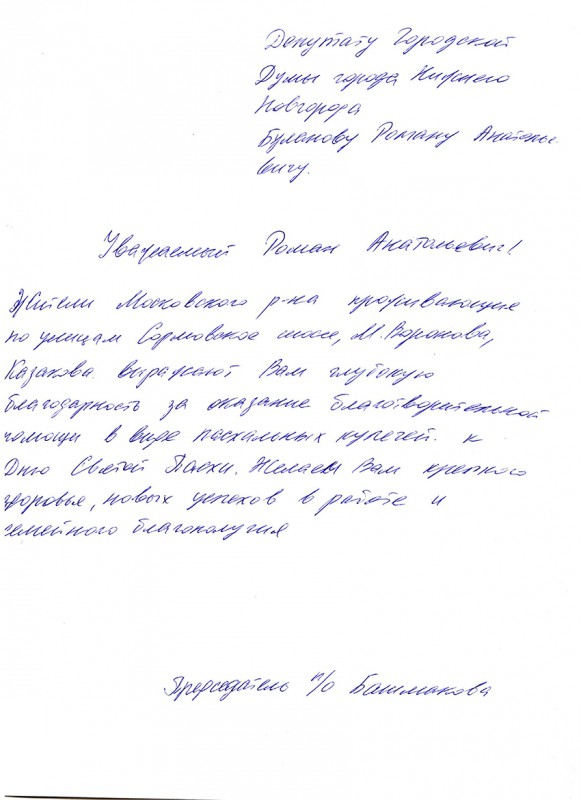 Депутату Городской
Думы города Нижнего
Новгорода
Буланову Роману Анатолье-
вичу.
Уважаемый Роман Анатольевич!
Жители Московского р-на проживающие
по улицам Сормовское шоссе, М.Воронова,
Казакова выражают Вам глубокую
благодарность за оказание благотворительной
помощи в виде пасхальных куличей. к
Дню Святой Пасхи. Желаем Вам крепкого
здоровья, новых успехов в работе и
семейного благополучия
Председатель п/о Башмакова